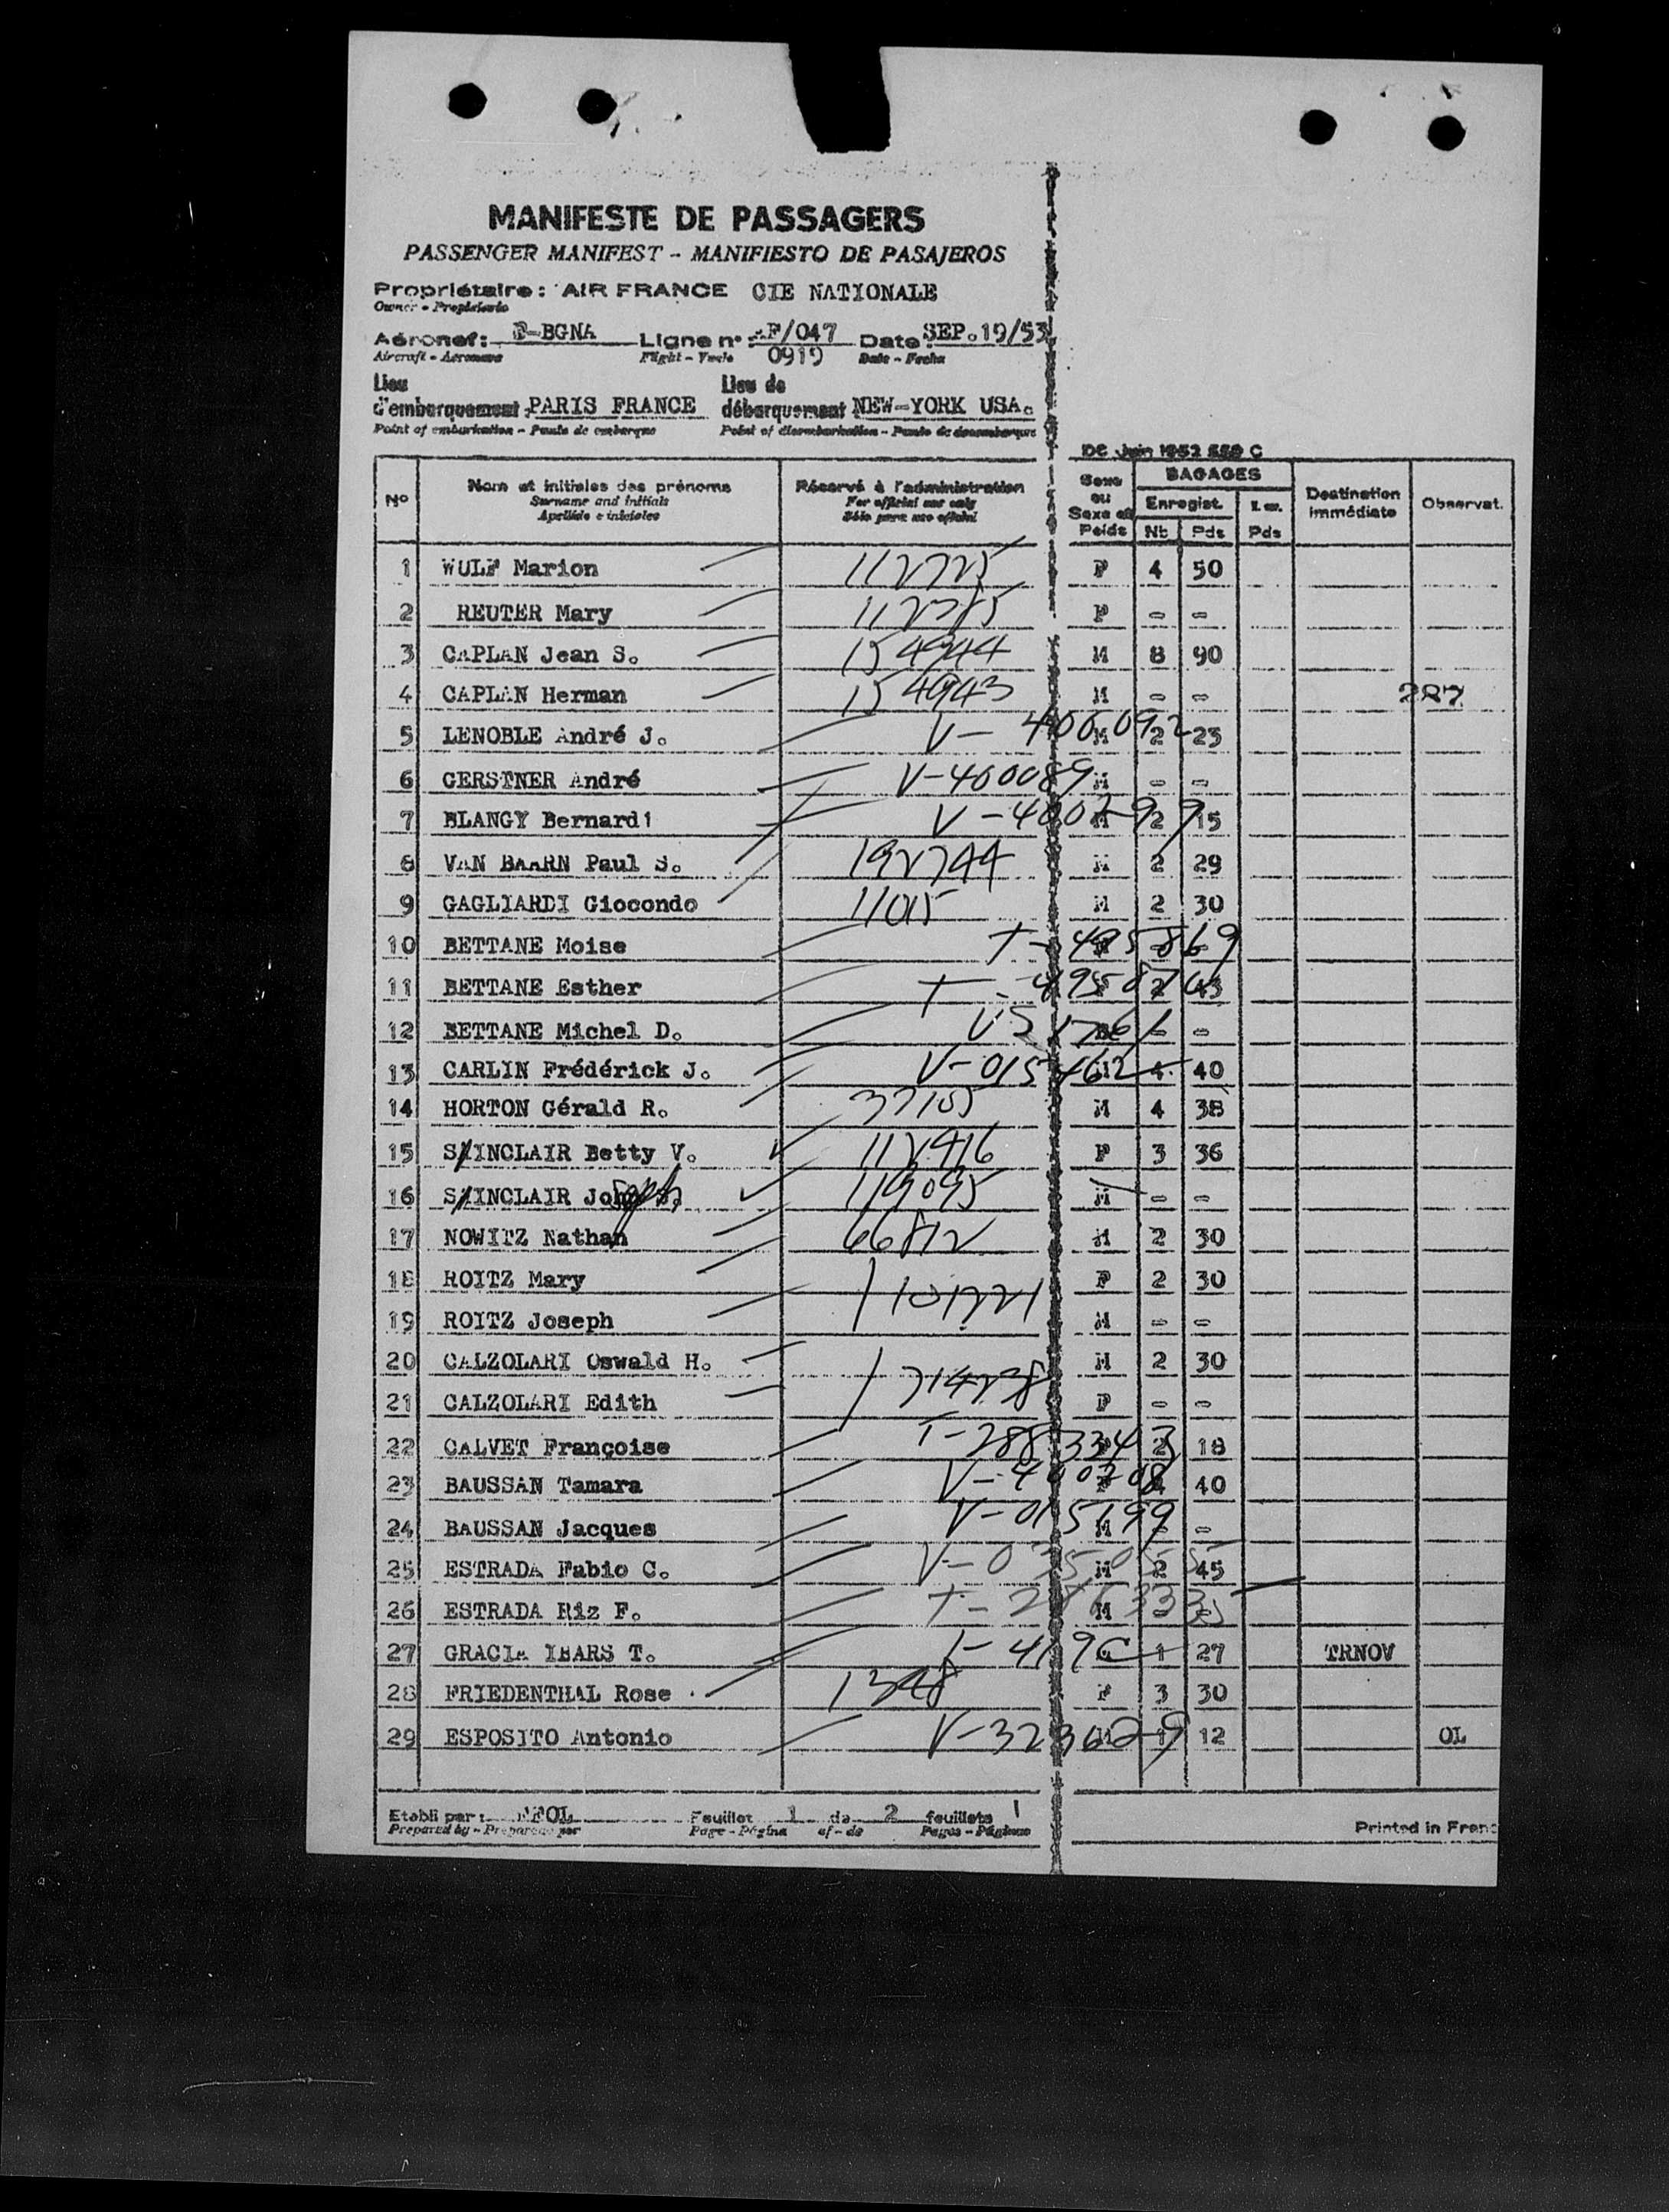 MANIFESTE DE PASSAGERS
PASSENGER MANIFEST - MANIFIESTO DE PASAJEROS
Propriétaire: AIR FRANCE CIE NATIONALE
Owner - Propietario
Aéronef: F-BGNA Ligne n° AF/047 Date: SEP.19/53
Aircraft - Aeronave Flight - Vuelo 0919 Date - Fecha
Lieu d'embarquement: PARIS FRANCE Lieu de débarquement NEW-YORK USA.
Point of embarkation - Punto de embarque Point of disembarkation - Punto de desembarque
DC Juin 1952 559 C
N° Nom et initiales des prénoms Réservé à l'administration Sexe ou Sexe et Poids BAGAGES Destination immédiate Observat.
Surname and initials For official use only Enregist.
Apellido e iniciales Sólo para uso oficial Nb Pds Pds
1 WULF Marion 112725 F 4 50
2 REUTER Mary 112385 F - -
3 CAPLAN Jean S. 154944 M 8 90
4 CAPLAN Herman 154943 M - - 287
5 LENOBLE André J. V-400092 M 2 23
6 GERSTNER André V-400089 M - -
7 BLANGY Bernard V-400299 M 2 15
8 VAN BAARN Paul S. 192744 M 2 29
9 GAGLIARDI Giocondo 11015 M 2 30
10 BETTANE Moise T-495869 - -
11 BETTANE Esther 2
12 BETTANE Michel D. - -
13 CARLIN Frédérick J. V-015462 M 4 40
14 HORTON Gérald R. 37105 M 4 38
15 SINCLAIR Betty V. 112916 F 3 36
16 SINCLAIR 119095 M - -
17 NOWITZ Nathan 66812 M 2 30
18 ROITZ Mary 101721 F 2 30
19 ROITZ Joseph M - -
20 CALZOLARI Oswald H. 71428 M 2 30
21 CALZOLARI Edith F - -
22 CALVET Françoise T-2883343 F 2 18
23 BAUSSAN Tamara V-400208 F 4 40
24 BAUSSAN Jacques V-015199 M - -
25 ESTRADA Fabio C. M 2 45
26 ESTRADA Riz F. M - -
27 GRACIA IBARS T. 1 27 TRNOV
28 FRIEDENTHAL Rose 1348 F 3 30
29 ESPOSITO Antonio V-323629 M 1 12 OL
Etabli par: Feuillet 1 de 2 feuillets 1
Prepared by - Preparado por Page - Página of - de Pages - Páginas
Printed in Franc